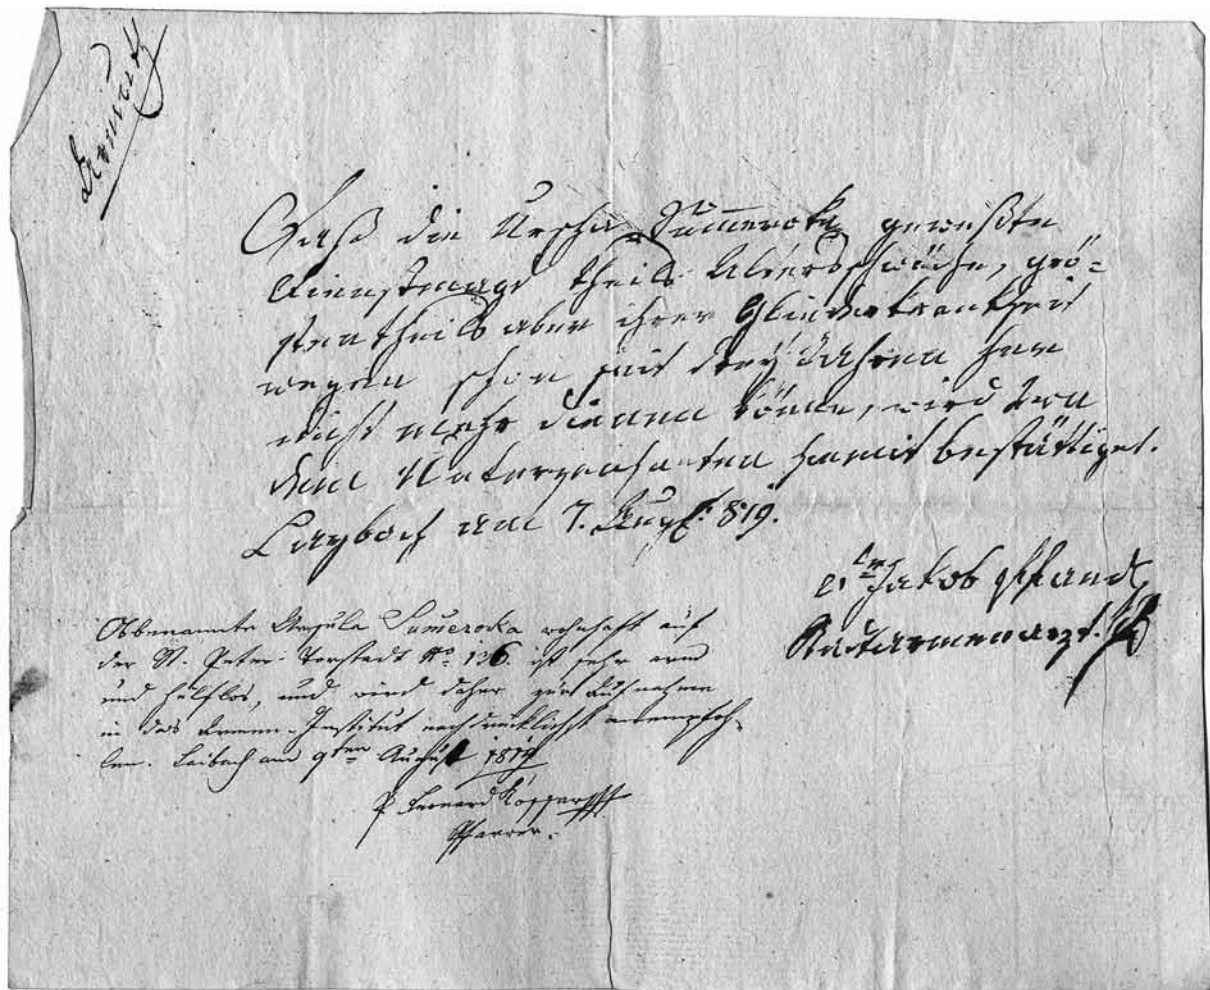 Daß die Urscha Summeroka geweßte
Dienstmagd theils Altersschwäche, grö=
stentheils aber ihrer Gliederkrankheit
wegen schon seit drey Jahren her
nicht mehr dienen könne, wird von
dem Unterzeichneten hiemit bestättiget.
Laybach am 7. Aug. 819.
Jakob
Stadtarmenarzt.
Obbenannte Ursula Sumeroka wohnhaft auf
der St. Peter-Vorstadt No. 136. ist sehr arm
und hülflos, und wird daher zur Aufnahme
in das Armen-Institut nachdrücklichst anempfoh-
len. Laibach am 9ten August 1819
P.
Pfarrer.